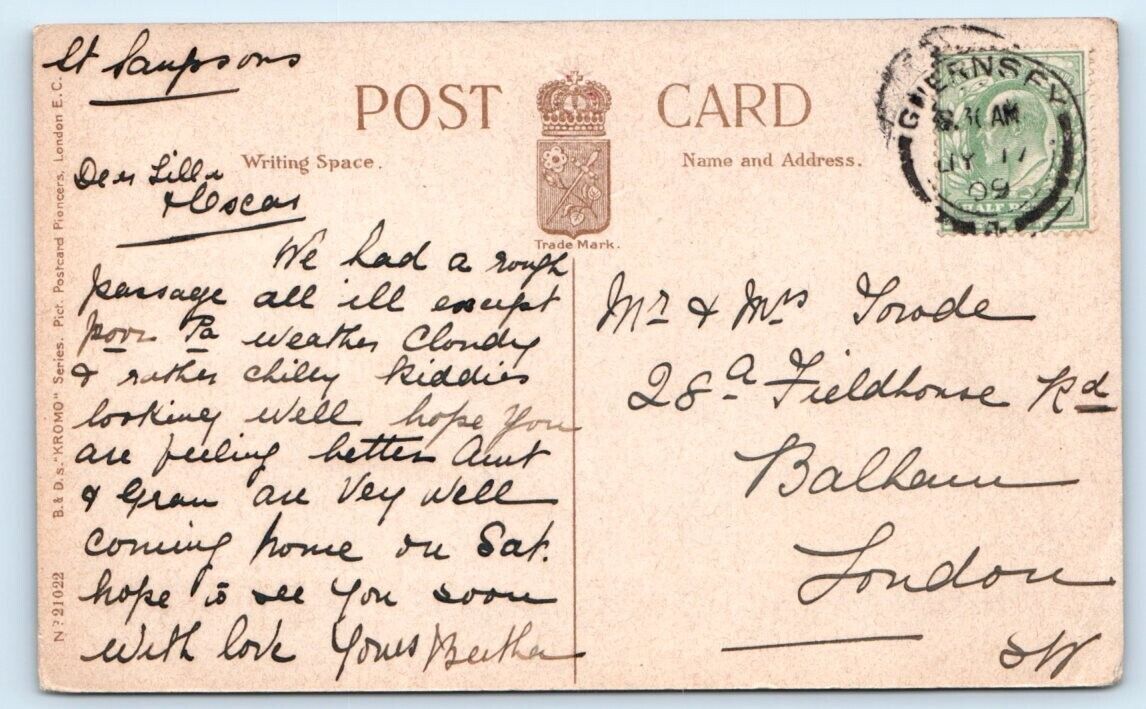 St Sampsons
POST CARD
Writing Space.
Name and Address.
Trade Mark.
GUERNSEY
AM
09
HALF
Dear Lill
& Oscar
We had a rough
passage all ill except
poor Pa weather Cloudy
& rather chilly kiddies
looking well hope you
are feeling better Aunt
& Gran are Vey well
coming home on Sat.
hope to see you soon
With love Yours Bertha
Mr & Mrs Torode
28a Fieldhouse Rd
Balham
London
SW
B. & D.s. "KROMO" Series. Pict. Postcard Pioneers, London E.C.
No 21022